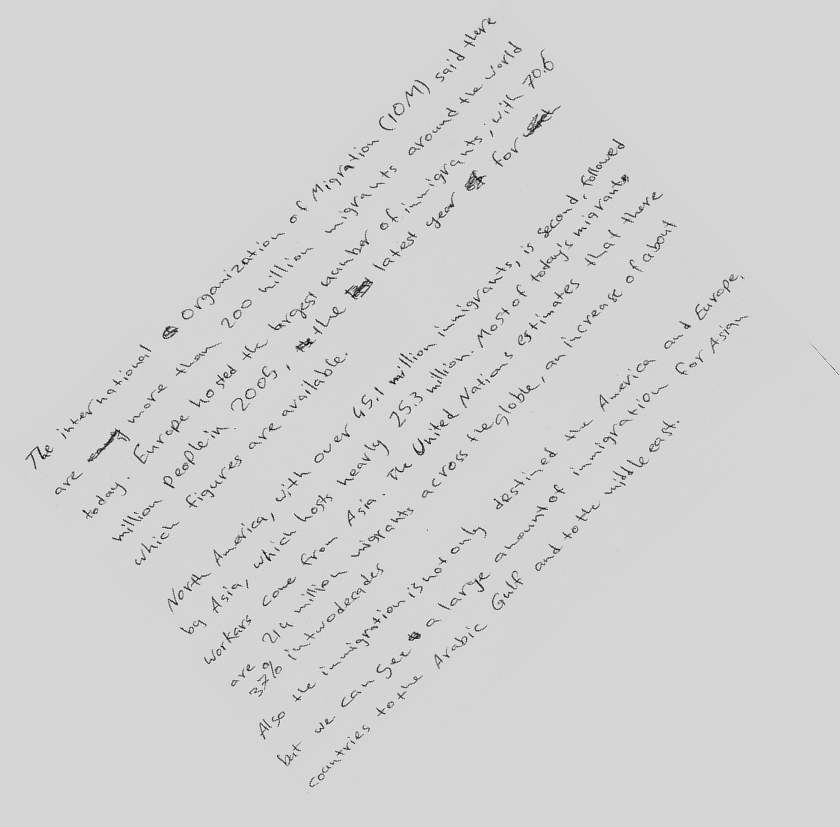 The international Organization of Migration (IOM) said there
are more than 200 million migrants around the world
today. Europe hosted the largest number of immigrants, with 70.6
million people in 2005, the latest year for
which figures are available.
North America, with over 45.1 million immigrants, is second, followed
by Asia, which hosts nearly 25.3 million. Most of today's migrants
workers come from Asia. The United Nations estimates that there
are 214 million migrants across the globle, an increase of about
37% in two decades
Also the immigration is not only destined the America and Europe,
but we can see a large amount of immigration for Asian
countries to the Arabic Gulf and to the middle east.